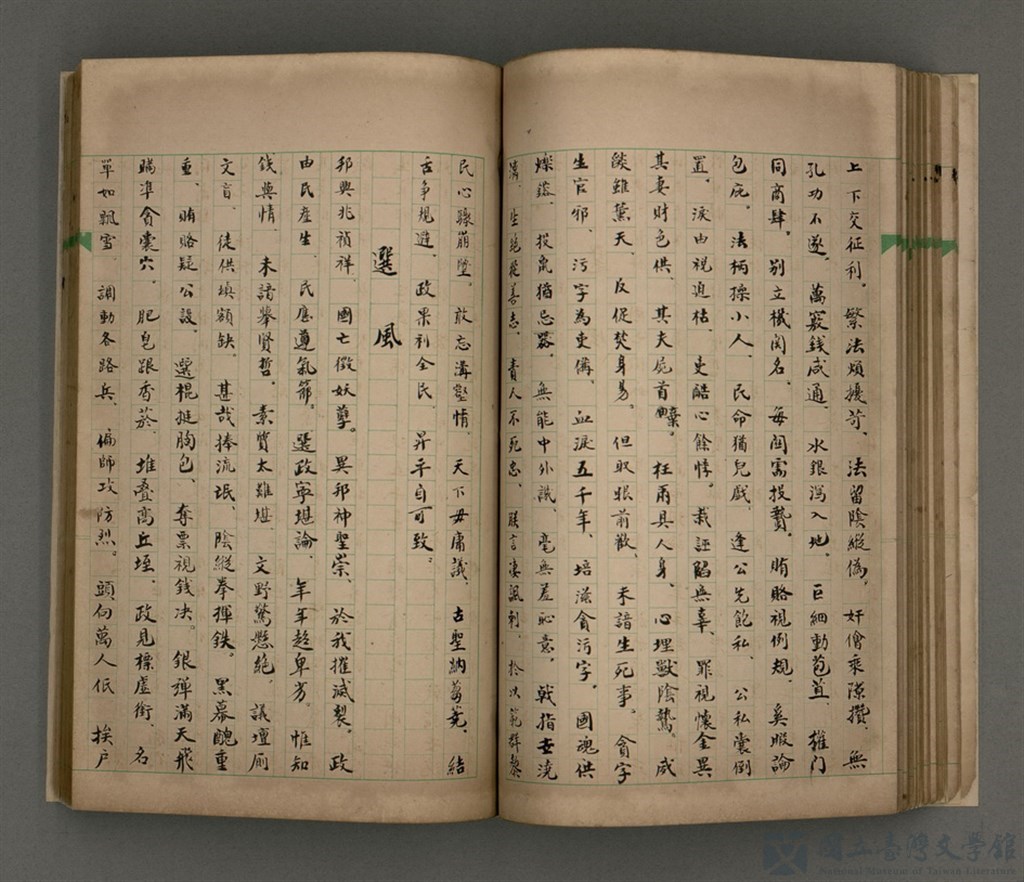 上下交征利。繁法煩擾苛、法留陰縱偽。奸儈乘隙攢、無
孔功不遂。萬竅錢咸通、水銀瀉入地。巨細動苞苴、雜門
同商肆。別立機関名。每関需投贄。賄賂視例規、奚暇論
包庇。法柄操小人、民命猶兒戲、逢公先飽私、公私囊倒
置。淚由視迫枯、吏酷心餘悸。栽誣陷無辜、罪視懷金異
其妻財色供、其夫屍首棄。枉爾具人身、心理獸陰鷙。威
燄雖薰天、反促焚身易。但取眼前歡、未諳生死事。貪字
生官邪、污字為吏備、血淚五千年、培滋貪污字。國魂供
燦鎔、投鼠猶忌器。無能中外譏、毫無羞恥意。戰指世澆
漓、坐絕從善志。責人不死忠、
民心驟崩墜。敢忘溝壑情、天下毋庸議、古聖納芻蕘、結
舌爭規避、政果利全民、昇平自可致。
選風
邦興兆禎祥、國亡徵妖孽。異邦神聖崇、於我摧滅裂。政
由民產生、民應遵氣節。選政寧堪論、年年趁卑劣。惟知
錢與情、未諳舉賢哲。素質太難堪、文野驚懸絕、議壇厠
文盲、徒供填額缺。甚哉捧流氓、陰縱拳揮鉄。黑幕醜重
重、賄賂疑公設、選棍挺胸包、奪票視錢决。銀彈滿天飛
瞄準貪囊穴。肥皂跟香菸、堆疊高丘垤。政見標虛銜、名
單如飄雪、調動各路兵、偏師攻防烈。頭向萬人低、挨戶
國立臺灣文學館
National Museum of Taiwan Literature